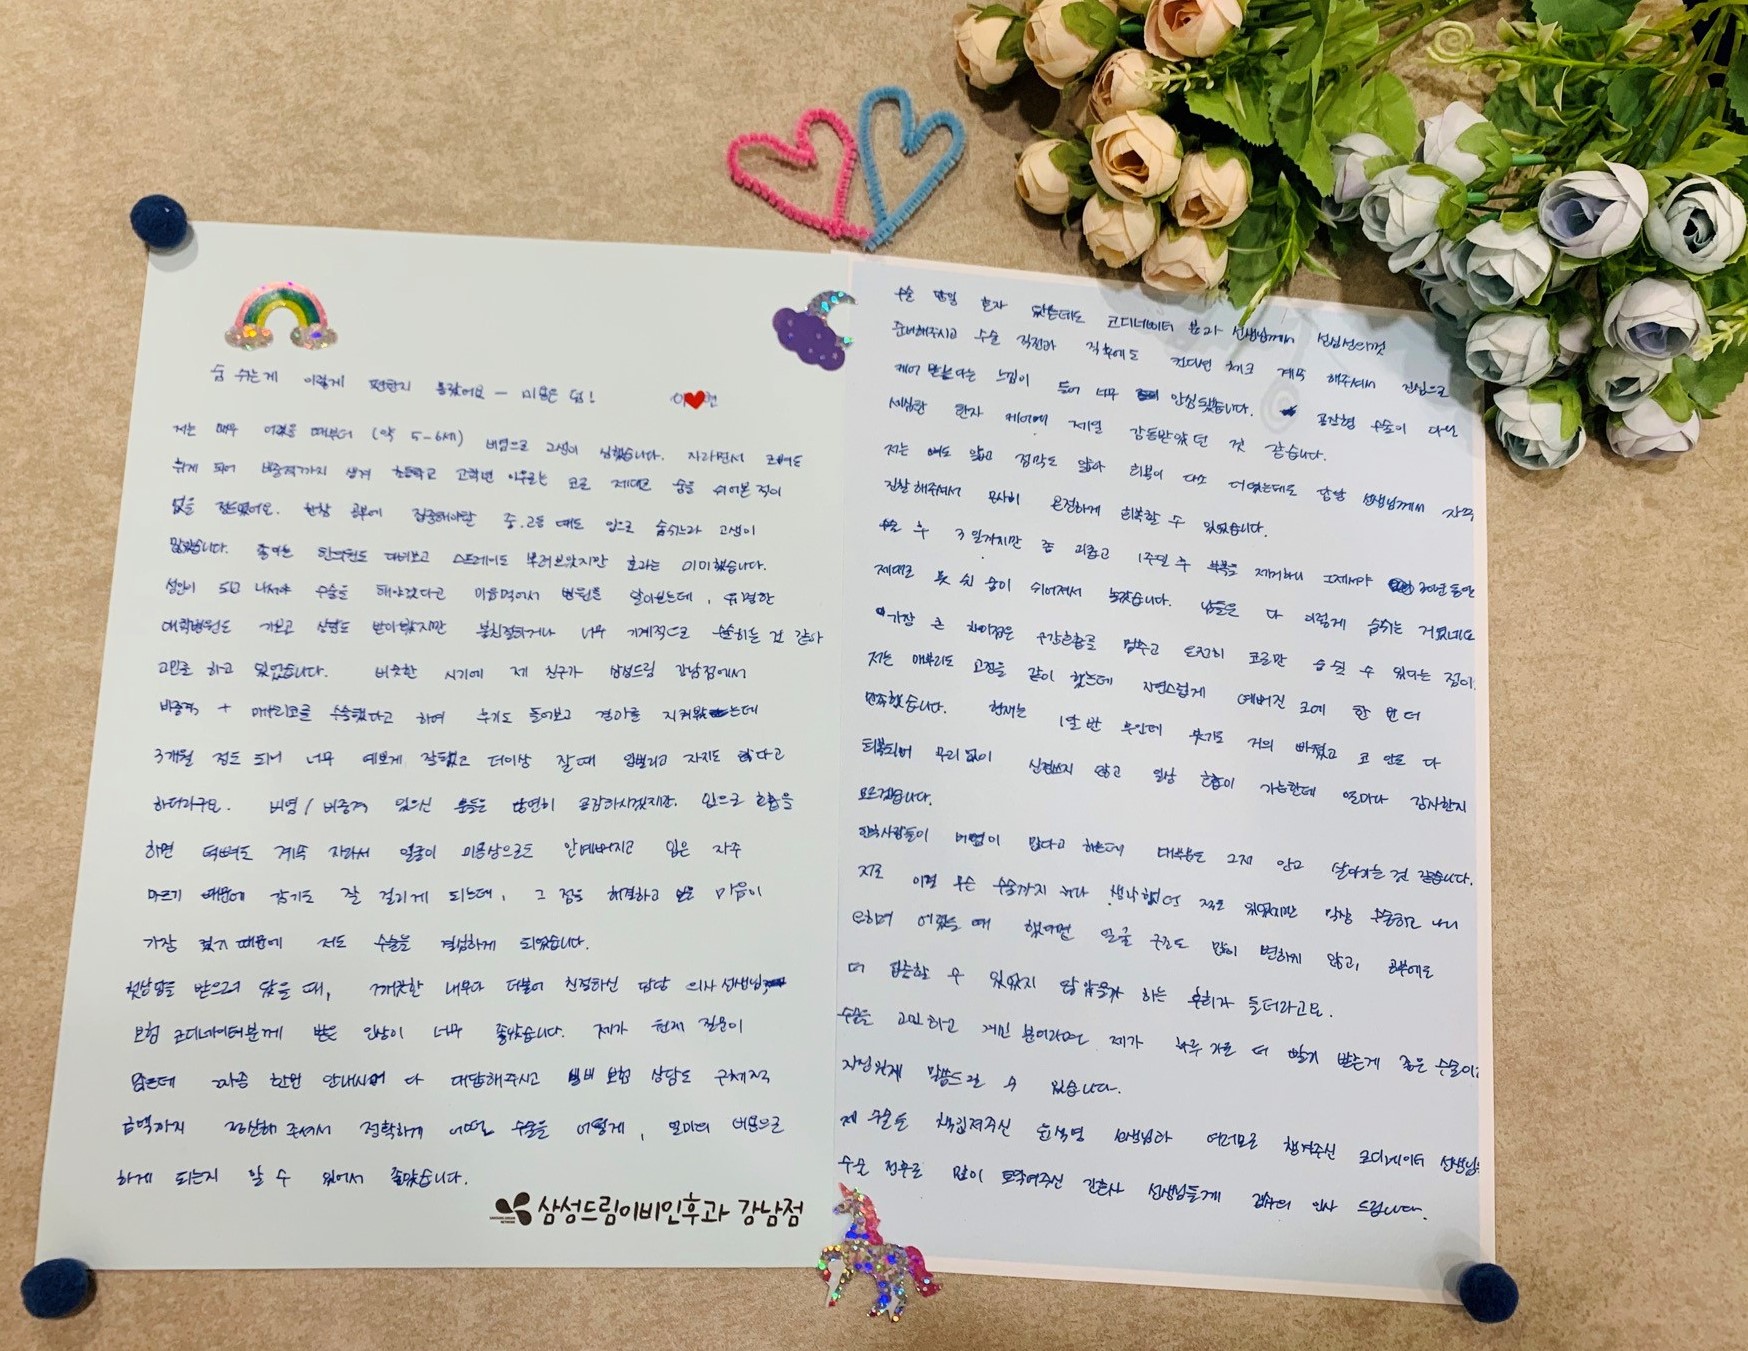 숨 쉬는게 이렇게 편한지 몰랐어요 – 미용은 덤!
저는 매우 어렸을 때부터 (약 5-6세) 비염으로 고생이 심했습니다. 자라면서 코뼈도
휘게 되어 비중격까지 생겨 초등학교 고학년 이후로는 코로 제대로 숨을 쉬어본 적이
없을 정도였어요. 한창 공부에 집중해야할 중.고등 때도 입으로 숨쉬느라 고생이
많았습니다. 좋다는 한의원도 다녀보고 스프레이도 뿌려보았지만 효과는 미미했습니다.
성인이 되고 나서야 수술을 해야겠다고 마음먹어서 병원을 알아보는데, 유명한
대학병원도 가보고 상담도 받아봤지만 불친절하거나 너무 기계적으로 수술하는 것 같아
고민을 하고 있었습니다. 비슷한 시기에 제 친구가 삼성드림 강남점에서
비중격 + 매부리코를 수술했다고 하여 후기도 들어보고 결과를 지켜봤는데
3개월 정도 되니 너무 예쁘게 잘됐고 더이상 잘때 입벌리고 자지도 않다고
하더라구요. 비염/비중격 있으신 분들은 당연히 공감하시겠지만, 입으로 호흡을
하면 턱뼈도 계속 자라서 얼굴이 미용상으로도 안예뻐지고 입은 자주
마르기 때문에 감기도 잘 걸리게 되는데, 그 점을 해결하고 싶은 마음이
가장 컸기 때문에 저도 수술을 결심하게 되었습니다.
첫상담을 받으러 갔을 때, 깨끗한 내부와 더불어 친절하신 담당 의사선생님,
보험 코디네이터분께 받은 인상이 너무 좋았습니다. 제가 원체 질문이
많은데 짜증 한번 안내시며 다 대답해주시고 실비 보험 상담도 구체적
금액까지 정산해 주셔서 정확하게 어떤 수술을 어떻게, 얼마의 비용으로
하게 되는지 알 수 있어서 좋았습니다.
삼성드림이비인후과 강남점
수술 당일 혼자 갔는데도 코디네이터 분과 선생님께서 성심성의껏
준비해주시고 수술 직전과 직후에도 컨디션 체크 계속 해주셔서 진심으로
케어 받는다는 느낌이 들어 너무 안심됐습니다. 공장형 수술이 아닌
세심한 환자 케어에 제일 감동받았던 것 같습니다.
저는 뼈도 얇고 점막도 얇아 회복이 다소 더뎠는데도 담당 선생님께서 자주
진찰해주셔서 무사히 온전하게 회복할 수 있었습니다.
수술 후 3일까지만 좀 괴롭고 1주일 후 부목을 제거하니 그제서야 30년 동안
제대로 못 쉰 숨이 쉬어져서 놀랐습니다. 남들은 다 이렇게 숨쉬는 거였네요
가장 큰 차이점은 구강호흡을 멈추고 온전히 코로만 숨 쉴 수 있다는 점이
저는 매부리도 교정을 같이 했는데 자연스럽게 예뻐진 코에 한 번 더
만족했습니다. 현재는 1달 반 후인데 붓기도 거의 빠졌고 코 안도 다
회복되어 무리없이 신경쓰지 않고 일상 호흡이 가능한데 얼마나 감사한지
모르겠습니다.
한국사람들이 비염이 많다고 하는데 대부분은 그저 안고 살아가는 것 같습니다.
저도 이걸 무슨 수술까지 하나 생각했던 적도 있었지만 막상 수술하고 나니
오히려 어렸을 때 했다면 얼굴 구조도 많이 변하지 않고, 공부에도
더 집중할 수 있었지 않았을까 하는 후회가 들더라고요.
수술을 고민하고 계신 분이라면, 제가 하루 라도 더 빨리 받는게 좋은 수술이라
자신있게 말씀드릴 수 있습니다.
제 수술을 책임져주신 선생님과 여러모로 챙겨주신 코디네이터 선생님
수술 전후로 많이 도와주신 간호사 선생님들께 감사의 인사 드립니다.